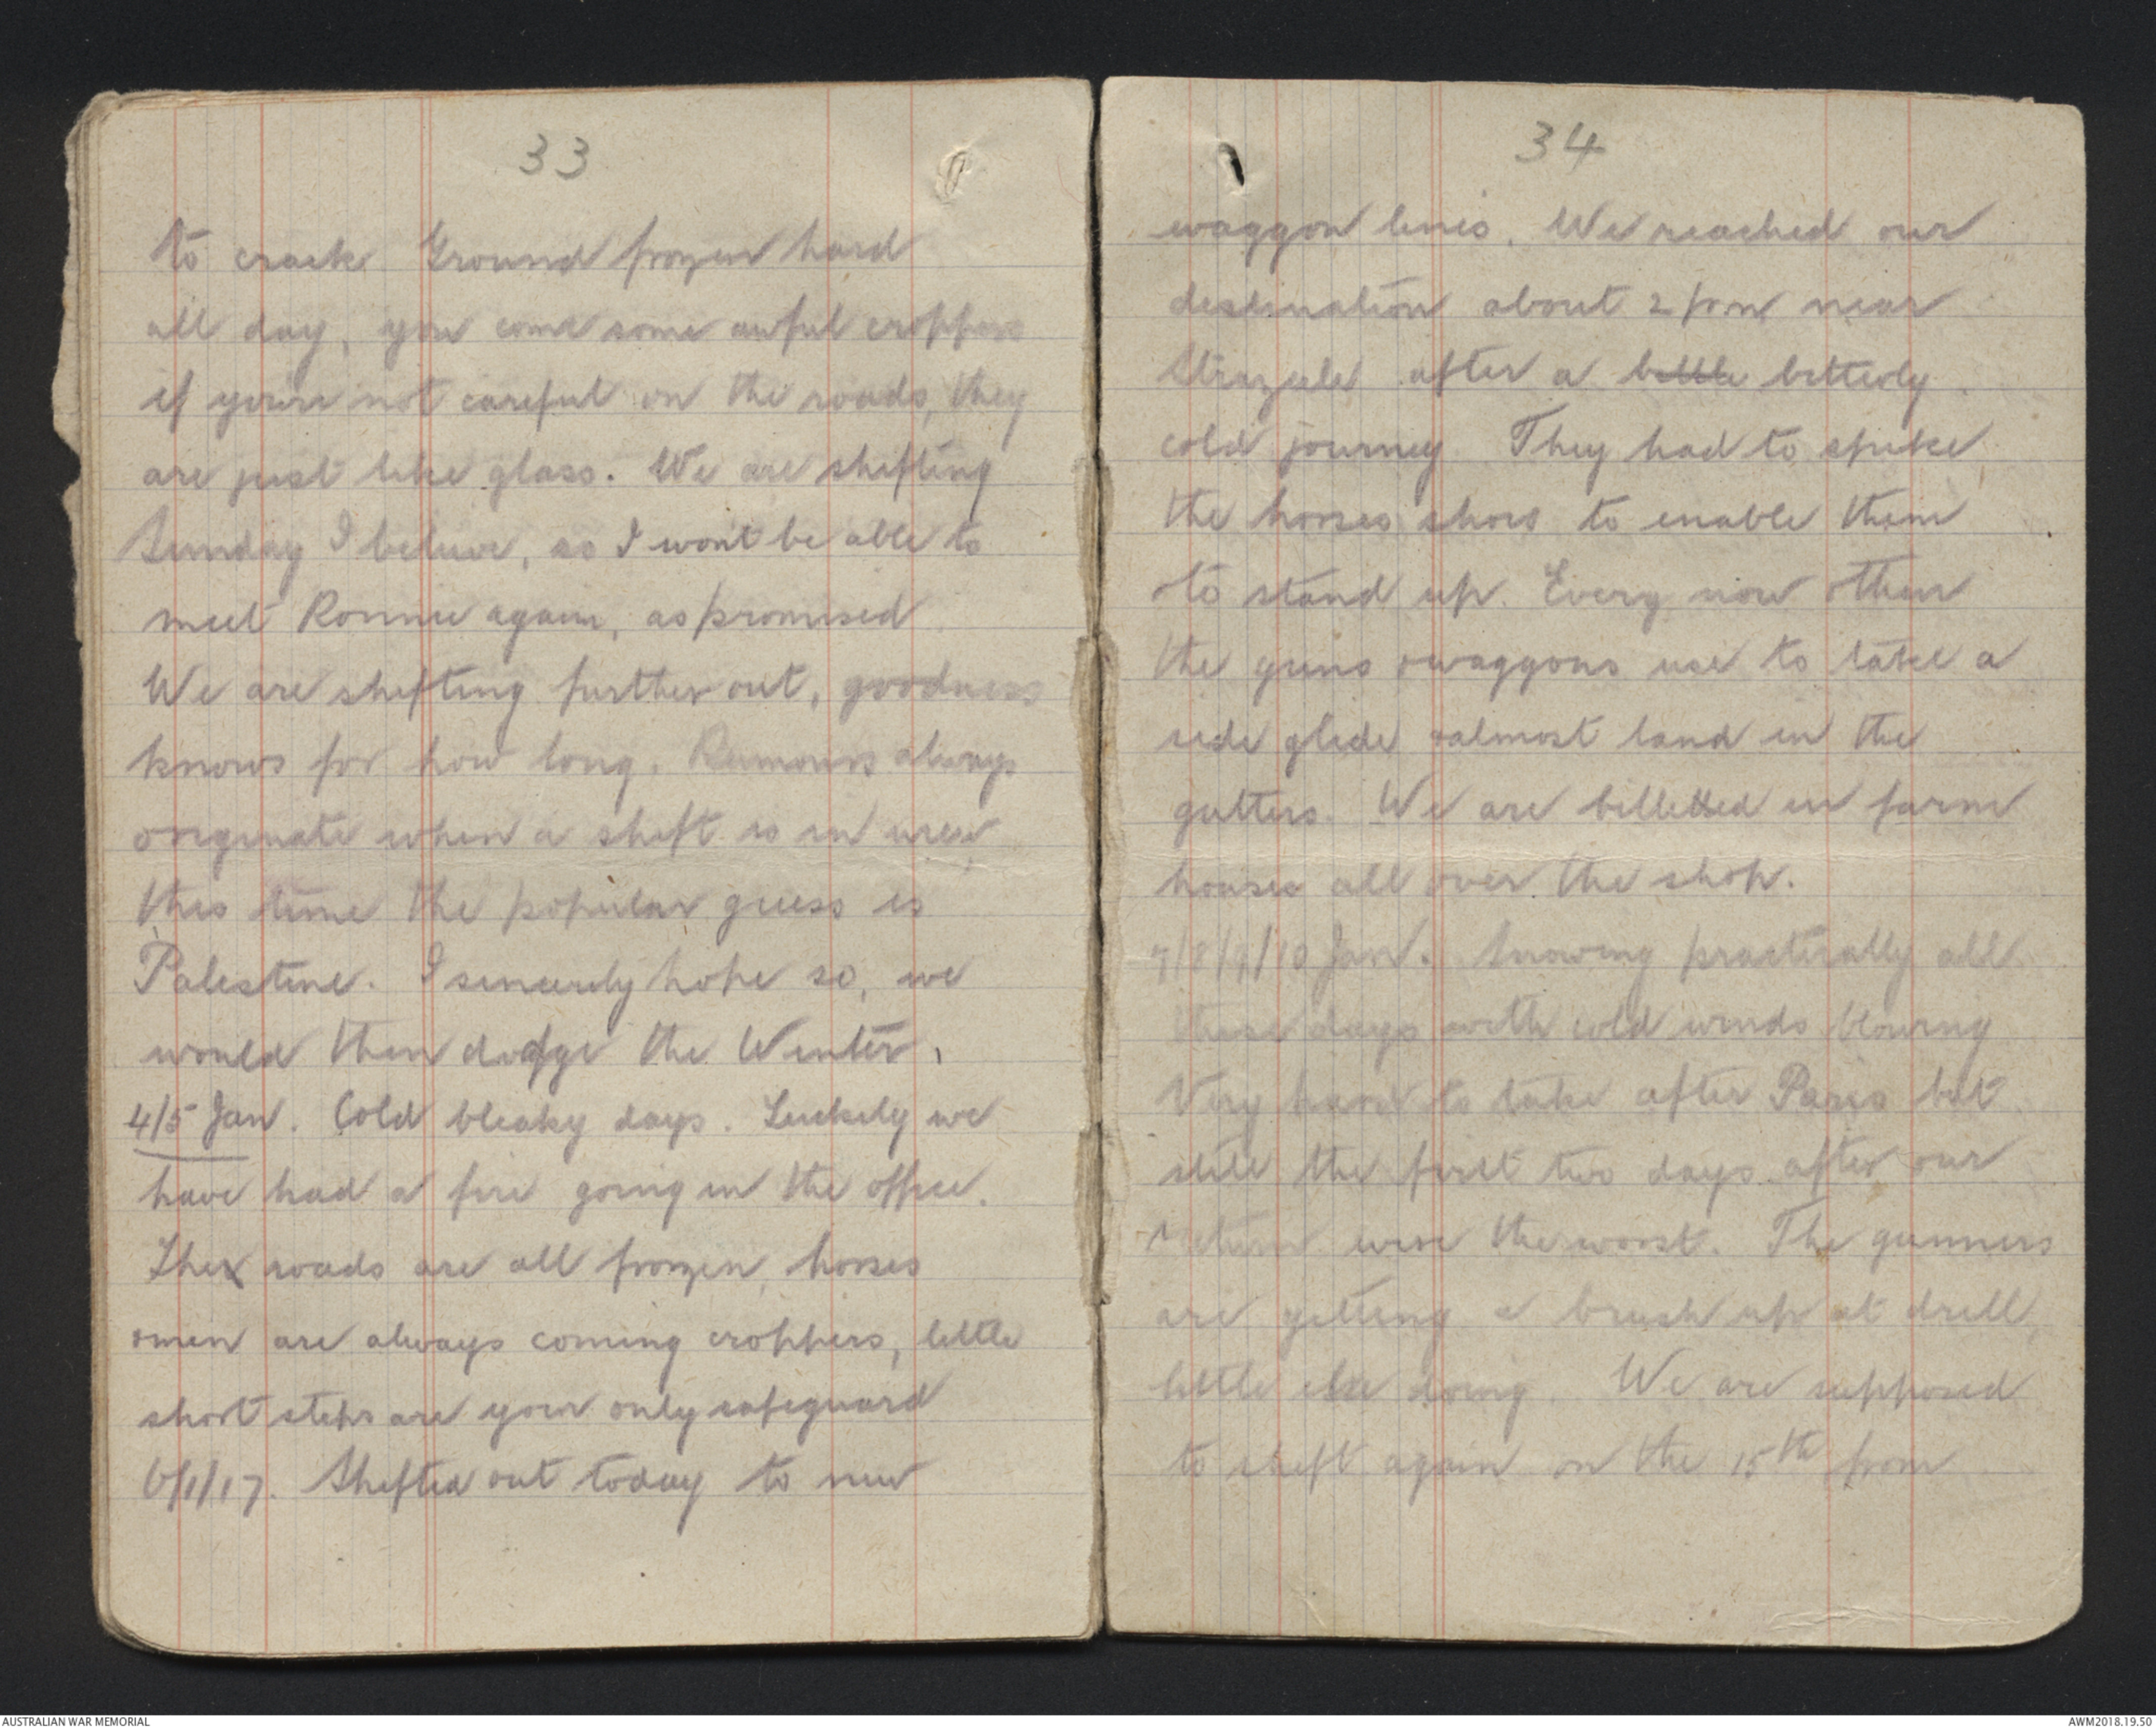 33
to crack. Ground frozen hard
all day, you come some awful croppers
if youre not careful on the roads, they
are just like glass. We are shifting
Sunday I believe, so I wont be able to
meet Ronnie again, as promised.
We are shifting further out, goodness
knows for how long. Rumours always
originate when a shift is in view,
this time the popular guess is
Palestine. I sincerely hope so, we
would then dodge the Winter.
4/5 Jan. Cold bleaky days. Luckily we
have had a fire going in the office.
The roads are all frozen, horses
& men are always coming croppers, little
short steps are your only safeguard
6/1/17. Shifted out today to new
34
waggon lines. We reached our
destination about 2 pm near
Strazeele after a bittle bitterly
cold journey. They had to spike
the horses shoes to enable them
to stand up. Every now & then
the guns & waggons use to take a
side glide & almost land in the
gutters. We are billetted in farm
houses all over the shop.
7/8/9/10 Jan. Snowing practically all
these days with cold winds blowing
Very hard to take after Paris but
still the first two days after our
return were the worst. The gunners
are getting a brush up at drill,
little else doing. We are supposed
to shift again on the 15th from
AUSTRALIAN WAR MEMORIAL
AWM2018.19.50